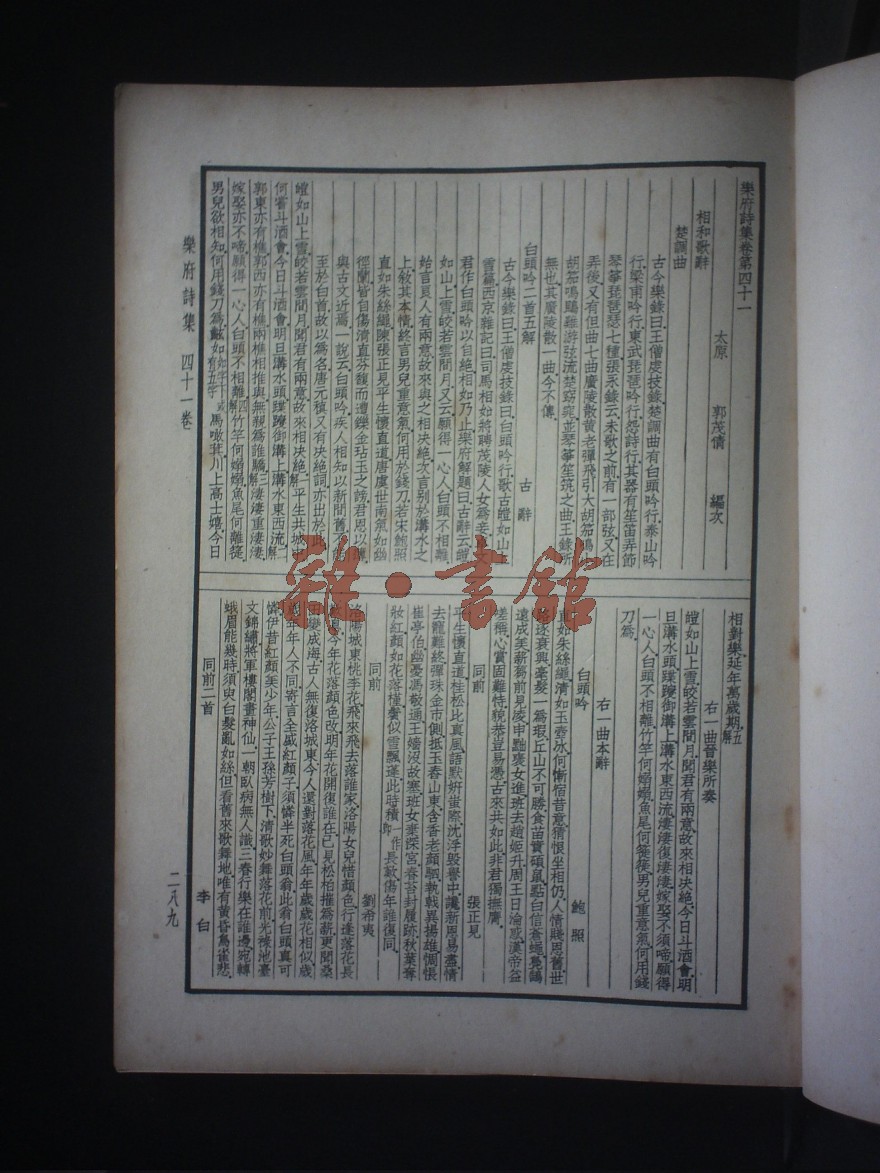 樂府詩集卷第四十一
太原 郭茂倩 編次
相和歌辭
楚調曲
古今樂錄曰王僧虔技錄楚調曲有白頭吟行泰山吟
行梁甫吟行東武琵琶吟行怨詩行其器有笙笛弄節
琴箏琵琶瑟七種張永錄云未歌之前有一部弦又在
弄後又有但曲七曲廣陵散黃老彈飛引大胡笳鳴小
胡笳鳴鵾雞游弦流楚窈窕並琴箏笙筑之曲王錄所
無也其廣陵散一曲今不傳
白頭吟二首五解 古辭
古今樂錄曰王僧虔技錄曰白頭吟行歌古皚如山上
雪篇西京雜記曰司馬相如將聘茂陵人女為妾文
君作白頭吟以自絕相如乃止樂府解題曰古辭云皚
如山上雪皎若雲間月又云願得一心人白頭不相離
始言良人有兩意故來與之相決絕次言別於溝水之
上敘其本情終言男兒重意氣何用於錢刀若宋鮑照
直如朱絲繩陳張正見平生懷直道唐虞世南氣如幽
徑蘭皆自傷清直芬馥而遭鑠金玷玉之謗君恩以薄
與古文近焉一說云白頭吟疾人相知以新間舊不能
至於白首故以為名唐元稹又有決絕詞亦出於此
皚如山上雪皎若雲間月聞君有兩意故來相決絕一解平生共城中
何嘗斗酒會今日斗酒會明旦溝水頭蹀躞御溝上溝水東西流二解
郭東亦有樵郭西亦有樵兩樵相推與無親為誰驕三解淒淒重淒淒
嫁娶亦不啼願得一心人白頭不相離四解竹竿何嫋嫋魚尾何離簁
男兒欲相知何用錢刀為齕如馬噉萁川上高士嬉今日
樂府詩集 四十一卷
相對樂延年萬歲期五解
右一曲晉樂所奏
皚如山上雪皎若雲間月聞君有兩意故來相決絕今日斗酒會明
旦溝水頭蹀躞御溝上溝水東西流淒淒復淒淒嫁娶不須啼願得
一心人白頭不相離竹竿何嫋嫋魚尾何簁簁男兒重意氣何用錢
刀為
右一曲本辭
白頭吟 鮑照
直如朱絲繩清如玉壺冰何慚宿昔意猜恨坐相仍人情賤恩舊世
路逐衰興毫髮一為瑕丘山不可勝食苗實碩鼠點白信蒼蠅鳧鵠
遠成美薪芻前見凌申黜褒女進班去趙姬升周王日淪惑漢帝益
嗟稱心賞固難恃貌恭豈易憑古來共如此非君獨撫膺
同前 張正見
平生懷直道桂松比真風語默妍蚩際沈浮毀譽中讒新恩易盡情
去寵難終彈珠金市側抵玉舂山東含香老顏駟執戟異揚雄惆悵
崔亭伯幽憂馮敬通王嬙沒故塞班女棄深宮春苔封履跡秋葉奪
妝紅顏如花落槿鬢似雪飄蓬此時積一作即長歎傷年誰復同
同前 劉希夷
洛陽城東桃李花飛來飛去落誰家洛陽女兒惜顏色行逢落花長
歎息今年花落顏色改明年花開復誰在已見松柏摧為薪更聞桑
田變成海古人無復洛城東今人還對落花風年年歲歲花相似歲
歲年年人不同寄言全盛紅顏子須憐半死白頭翁此翁白頭真可
憐伊昔紅顏美少年公子王孫芳樹下清歌妙舞落花前光祿池臺
文錦繡將軍樓閣畫神仙一朝臥病無人識三春行樂在誰邊宛轉
蛾眉能幾時須臾白髮亂如絲但看舊來歌舞地唯有黃昏鳥雀悲
同前二首 李白
二八九
雜·書館